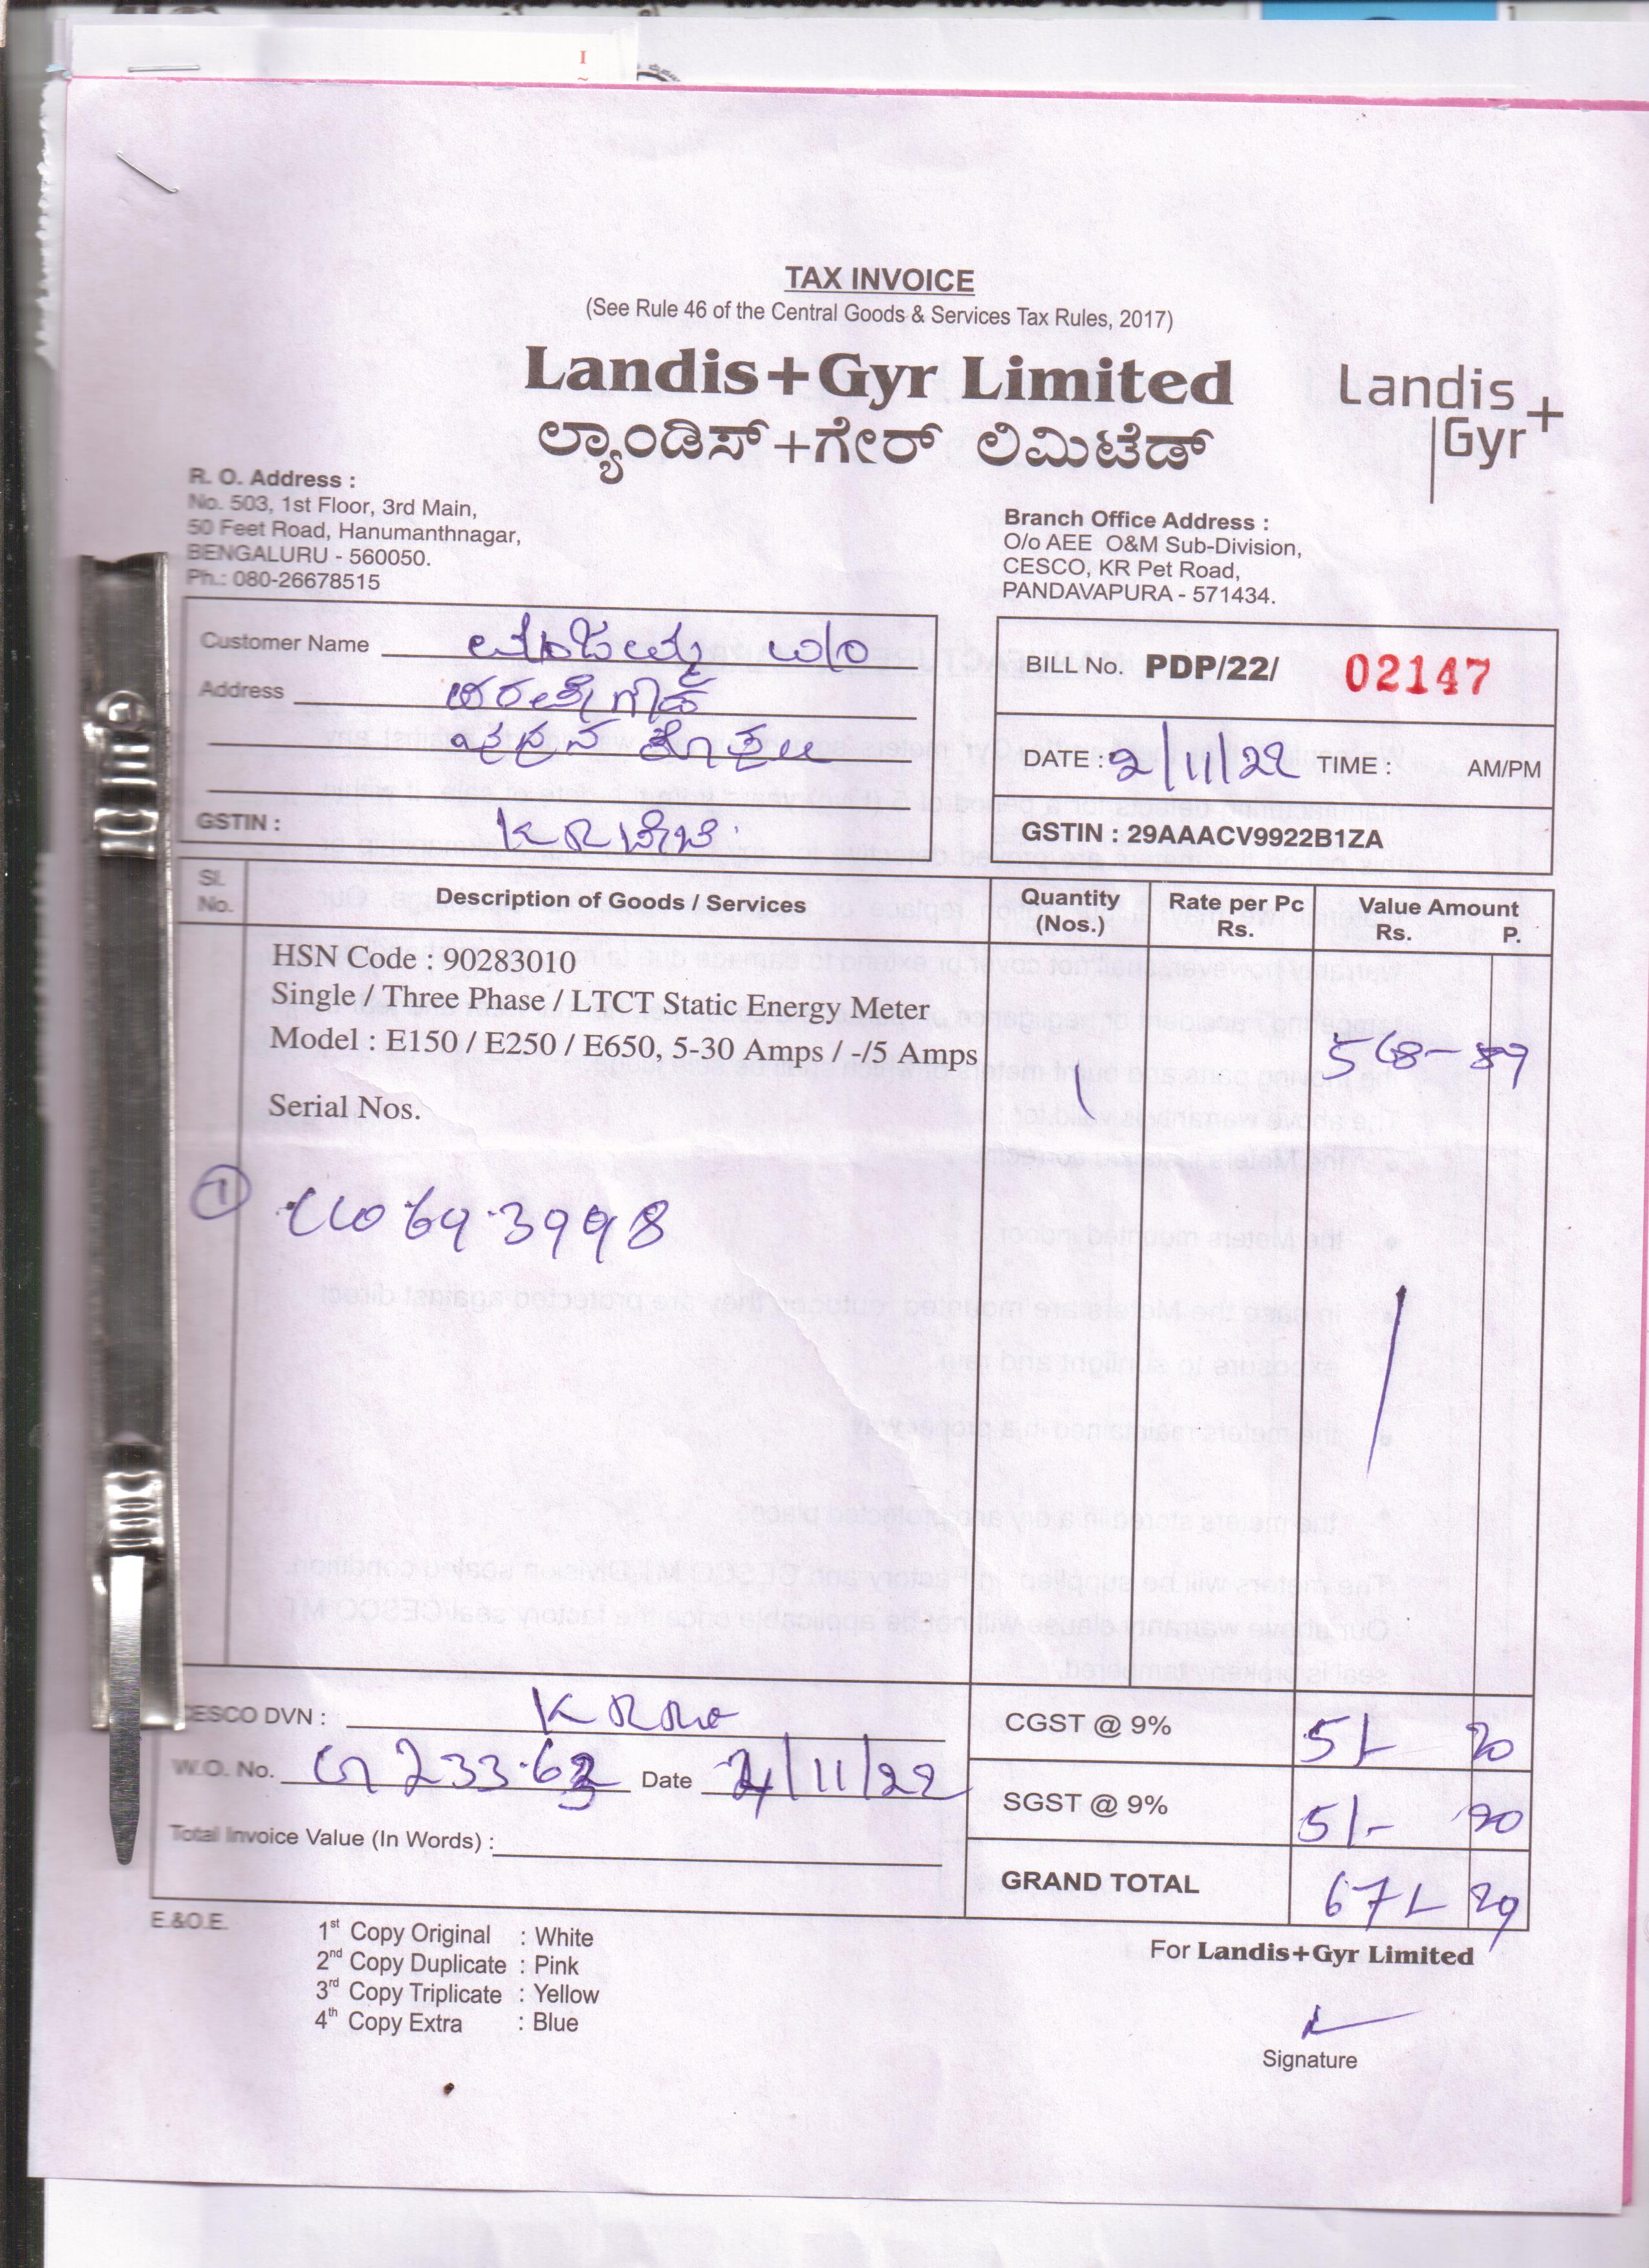 TAX INVOICE
(See Rule 46 of the Central Goods & Services Tax Rules, 2017)
Landis+Gyr Limited
ಲ್ಯಾಂಡಿಸ್+ಗೇರ್ ಲಿಮಿಟೆಡ್
Landis+
Gyr
R. O. Address :
No. 503, 1st Floor, 3rd Main,
50 Feet Road, Hanumanthnagar,
BENGALURU - 560050.
Ph.: 080-26678515
Branch Office Address :
O/o AEE O&M Sub-Division,
CESCO, KR Pet Road,
PANDAVAPURA - 571434.
Customer Name
Address
GSTIN :
BILL No. PDP/22/ 02147
DATE : 2/11/22 TIME : AM/PM
GSTIN : 29AAACV9922B1ZA
Sl. No. Description of Goods / Services Quantity (Nos.) Rate per Pc Rs. Value Amount Rs. P.
HSN Code : 90283010
Single / Three Phase / LTCT Static Energy Meter
Model : E150 / E250 / E650, 5-30 Amps / -/5 Amps 1 568-89
Serial Nos.
1
CESCO DVN :
CGST @ 9% 51 20
W.O. No. Date /11/22
SGST @ 9% 51 20
Total Invoice Value (In Words) :
GRAND TOTAL 671 29
E.&O.E.
1st Copy Original : White
2nd Copy Duplicate : Pink
3rd Copy Triplicate : Yellow
4th Copy Extra : Blue
For Landis+Gyr Limited
Signature